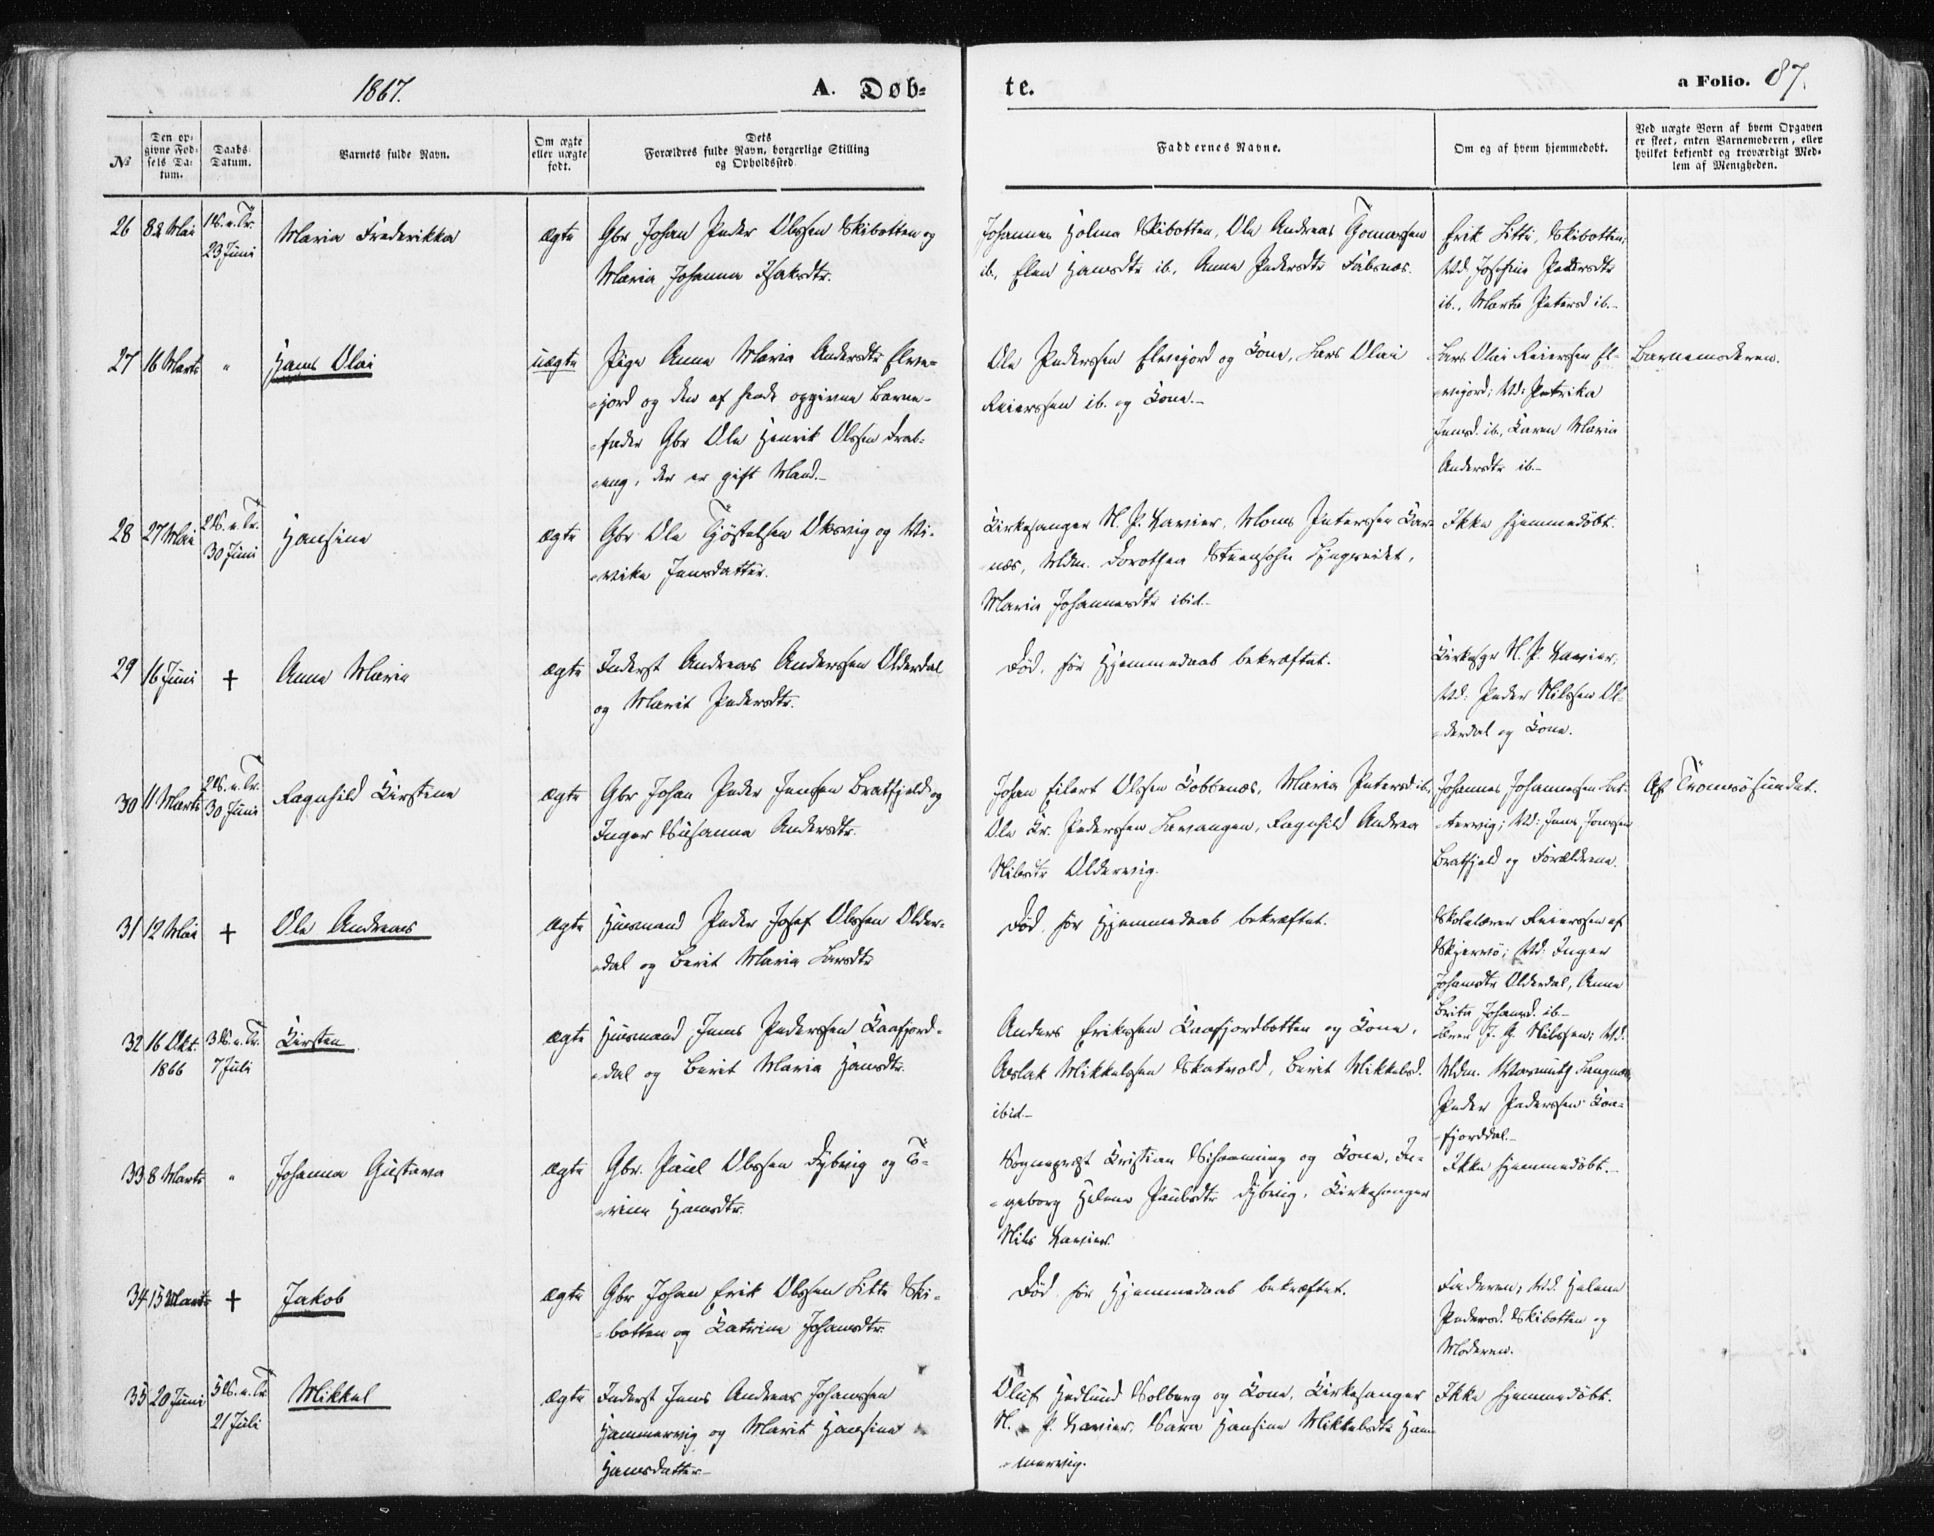 1867.
A. Døb-
te.
a Folio. 87.
No
Den op-
givne Fød-
sels Da-
tum.
Daabs
Datum.
Barnets fulde Navn.
Om ægte
eller uægte
født.
Dets
Forældres fulde Navn, borgerlige Stilling
og Opholdssted.
Faddernes Navne.
Om og af hvem hjemmedøbt.
Ved uægte Børn af hvem Opgaven
er skeet, enten Barnemoderen, eller
hvilket bekjendt og troværdigt Med-
lem af Menigheden.
26
Mai
1 S. e. Tr.
23 Juni
Maria Frederikka
ægte
Gbr Johan Peder Olssen Skibotten og
Maria Johanna Isaksdtr.
Johannes Holma Skibotten, Ole Andreas Thomassen
ib, Elen Hansdtr ib, Anne Pedersdtr Falsnæs.
Erik Litti, Skibotten;
Vid: Josefine Pedersdtr
ib., Marta Petersd ib.
27
16 Marts
"
Hans Olai
uægte
Pige Anne Maria Andersdtr Elve-
jord og den af hende opgivne Barne-
fader Gbr Ole Henrik Olssen
eng, der er gift Mand.
Ole Pederssen Elvejord og Kone, Lars Olai
Reierssen ib. og Kone.
Lars Olai Reierssen El-
vejord; Vid: Petrika
Jensd. ib, Karen Maria
Andersdtr ib
Barnemoderen.
28
27 Mai
2 S. e. Tr.
30 Juni
Hansine
ægte
Gbr Ole Tjøstelsen Oksvig og Vi-
vike Jensdatter.
Kirkesanger N. P. Xavier, Mons Peterssen Kar-
næs, Mdm. Dorothea Steensohn Lyngseidet,
Maria Johannesdtr ibid.
Ikke hjemmedøbt.
29
16 Juni
+
Anne Maria
ægte
Inderst Andreas Anderssen Olderdal
og Marit Pedersdtr.
Død, før Hjemmedaab bekræftet.
Kirkesgr N. P. Xavier;
Vid: Peder Nilssen Ol-
derdal og Kone.
30
11 Marts
2 S. e. Tr.
30 Juni
Ragnhild Kirstine
ægte
Gbr Johan Peder Jenssen Bratfjeld og
Inger Susanna Andersdtr.
Johan Eilert Olssen Kobbenæs, Maria Petersd ib,
Ole Kr. Pederssen Lavangen, Ragnhild Andrea
Nilsdtr Oldervig.
Johannes Johannessen Lat-
tervig; Vid: Jens Jenssen
Bratfjeld og Forældrene.
Af Tromsøsundet.
31
12 Mai
+
Ole Andreas
ægte
Husmand Peder Josef Olssen Older-
dal og Berit Maria Larsdtr
Død, før Hjemmedaab bekræftet.
Skolelærer Reierssen af
Skjervø; Vid: Inger
Johansdtr Olderdal, Anne
Brita Johansd. ib
32
16 Okt.
1866
3 S. e. Tr.
7 Juli
Kirsten
ægte
Husmand Jens Pederssen Kaafjord-
dal og Berit Maria Hansdtr.
Anders Erikssen Kaafjordbotten og Kone,
Aslak Mikkelssen Skatvold, Berit Mikkelsd.
ibid
Lærer J. G. Nilssen; Vid:
Mdm. Wasmuth Langnæs,
Peder Pederssen Kaa-
fjorddal.
33
8 Marts
"
Johanna Gustava
ægte
Gbr. Paul Olssen Dybvig og To-
rine Hansdtr.
Sognepræst Kristian Schaanning og Kone, In-
geborg Helene Paulsdtr Dybvig, Kirkesanger
Nils Xavier.
Ikke hjemmedøbt.
34
15 Marts
+
Jakob
ægte
Gbr Johan Erik Olssen Litti Ski-
botten og Katrine Johansdtr.
Død, før Hjemmedaab bekræftet.
Faderen; Vid. Helene
Pedersd. Skibotten og
Moderen.
35
20 Juni
5 S. e. Tr
21 Juli
Mikkel
ægte
Inderst Jens Andreas Johanssen
Hammervig og Marit Hansine
Hansdatter
Oluf Hedlund Solberg og Kone, Kirkesanger
N. P. Xavier, Sara Hansine Mikkelsdtr Ham-
mervig.
Ikke hjemmedøbt.